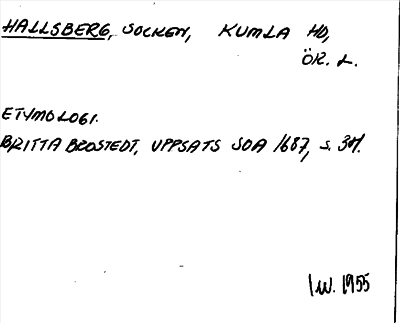 HALLSBERG, SOCKEN, KUMLA HD,
ÖR. L.
ETYMOLOGI.
BRITTA BROSTEDT, UPPSATS SOA 1687, S. 3ff.
I.W. 1955